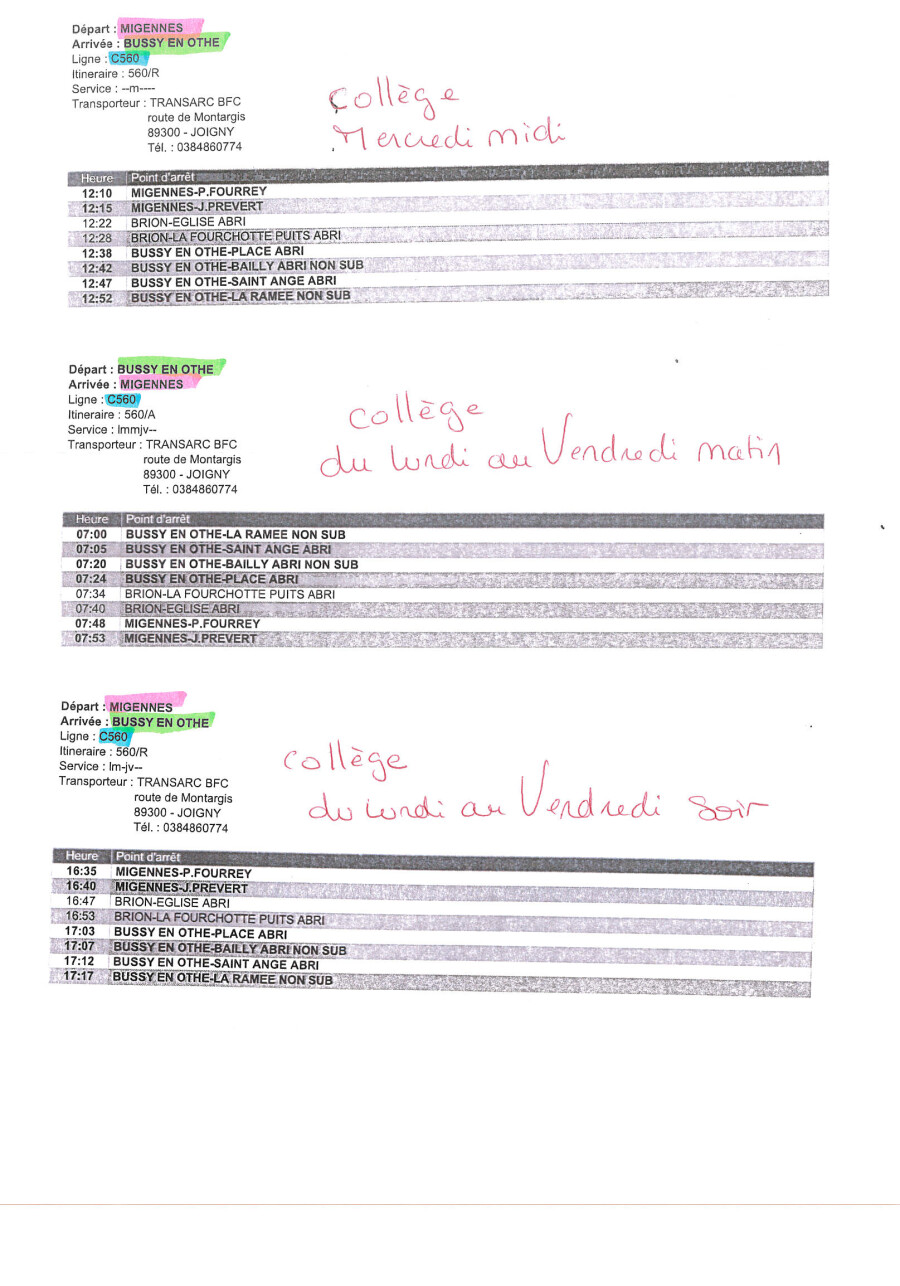 Départ : MIGENNES
Arrivée : BUSSY EN OTHE
Ligne : C560
Itineraire : 560/R
Service : --m----
Transporteur : TRANSARC BFC
route de Montargis
89300 - JOIGNY
Tél. : 0384860774
Collège
Mercredi midi
Heure Point d'arrêt
12:10 MIGENNES-P.FOURREY
12:15 MIGENNES-J.PREVERT
12:22 BRION-EGLISE ABRI
12:28 BRION-LA FOURCHOTTE PUITS ABRI
12:38 BUSSY EN OTHE-PLACE ABRI
12:42 BUSSY EN OTHE-BAILLY ABRI NON SUB
12:47 BUSSY EN OTHE-SAINT ANGE ABRI
12:52 BUSSY EN OTHE-LA RAMEE NON SUB
Départ : BUSSY EN OTHE
Arrivée : MIGENNES
Ligne : C560
Itineraire : 560/A
Service : lmmjv--
Transporteur : TRANSARC BFC
route de Montargis
89300 - JOIGNY
Tél. : 0384860774
collège
du lundi au Vendredi matin
Heure Point d'arrêt
07:00 BUSSY EN OTHE-LA RAMEE NON SUB
07:05 BUSSY EN OTHE-SAINT ANGE ABRI
07:20 BUSSY EN OTHE-BAILLY ABRI NON SUB
07:24 BUSSY EN OTHE-PLACE ABRI
07:34 BRION-LA FOURCHOTTE PUITS ABRI
07:40 BRION-EGLISE ABRI
07:48 MIGENNES-P.FOURREY
07:53 MIGENNES-J.PREVERT
Départ : MIGENNES
Arrivée : BUSSY EN OTHE
Ligne : C560
Itineraire : 560/R
Service : lm-jv--
Transporteur : TRANSARC BFC
route de Montargis
89300 - JOIGNY
Tél. : 0384860774
collège
du lundi au Vendredi soir
Heure Point d'arrêt
16:35 MIGENNES-P.FOURREY
16:40 MIGENNES-J.PREVERT
16:47 BRION-EGLISE ABRI
16:53 BRION-LA FOURCHOTTE PUITS ABRI
17:03 BUSSY EN OTHE-PLACE ABRI
17:07 BUSSY EN OTHE-BAILLY ABRI NON SUB
17:12 BUSSY EN OTHE-SAINT ANGE ABRI
17:17 BUSSY EN OTHE-LA RAMEE NON SUB